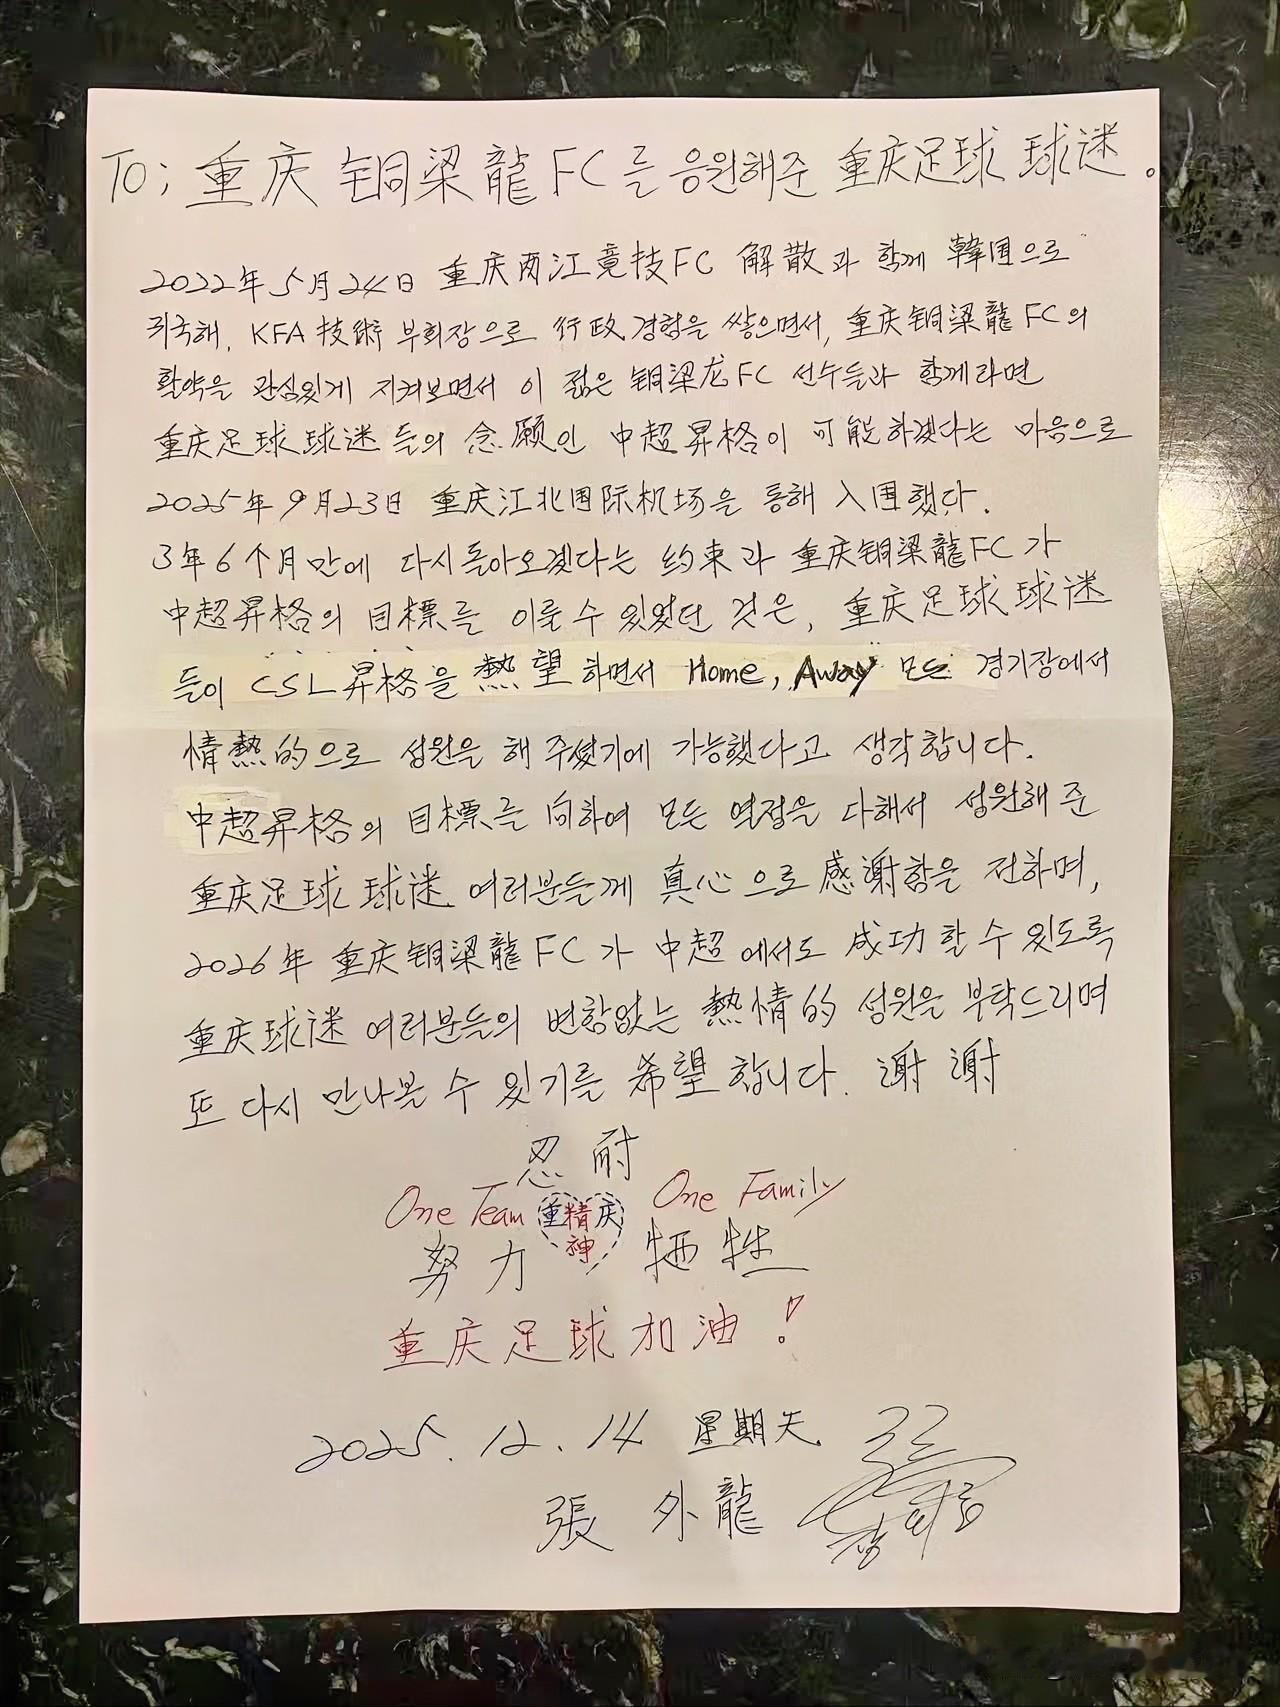 To; 重庆 铜梁龍FC를 응원해준 重庆足球 球迷。
2022年 5月 24日 重庆两江竞技FC 解散과 함께 韓国으로
귀국해, KFA 技術 부회장으로 行政 경험을 쌓으면서, 重庆铜梁龍FC의
활약을 관심있게 지켜보면서 이 젊은 铜梁龙FC 선수들과 함께라면
重庆足球 球迷들의 念願인 中超昇格이 可能하겠다는 마음으로
2025年 9月23日 重庆江北国际机场을 통해 入国했다.
3年6个月만에 다시돌아오겠다는 约束과 重庆铜梁龍FC가
中超昇格의 目標를 이룰 수 있었던 것은, 重庆足球 球迷
들이 CSL昇格을 熱望하면서 Home, Away 모든 경기장에서
情熱的으로 성원을 해 주셨기에 가능했다고 생각합니다.
中超昇格의 目標를 向하여 모든 열정을 다해서 성원해 준
重庆足球 球迷 여러분들께 真心으로 感谢함을 전하며,
2026年 重庆铜梁龍FC가 中超에서도 成功할 수 있도록
重庆球迷 여러분들의 변함없는 熱情的 성원을 부탁드리며
또 다시 만나볼 수 있기를 希望합니다. 谢谢
忍耐
One Team 重精庆 One Family
神
努力 牺牲
重庆足球加油!
2025. 12. 14 星期天
張 外龍